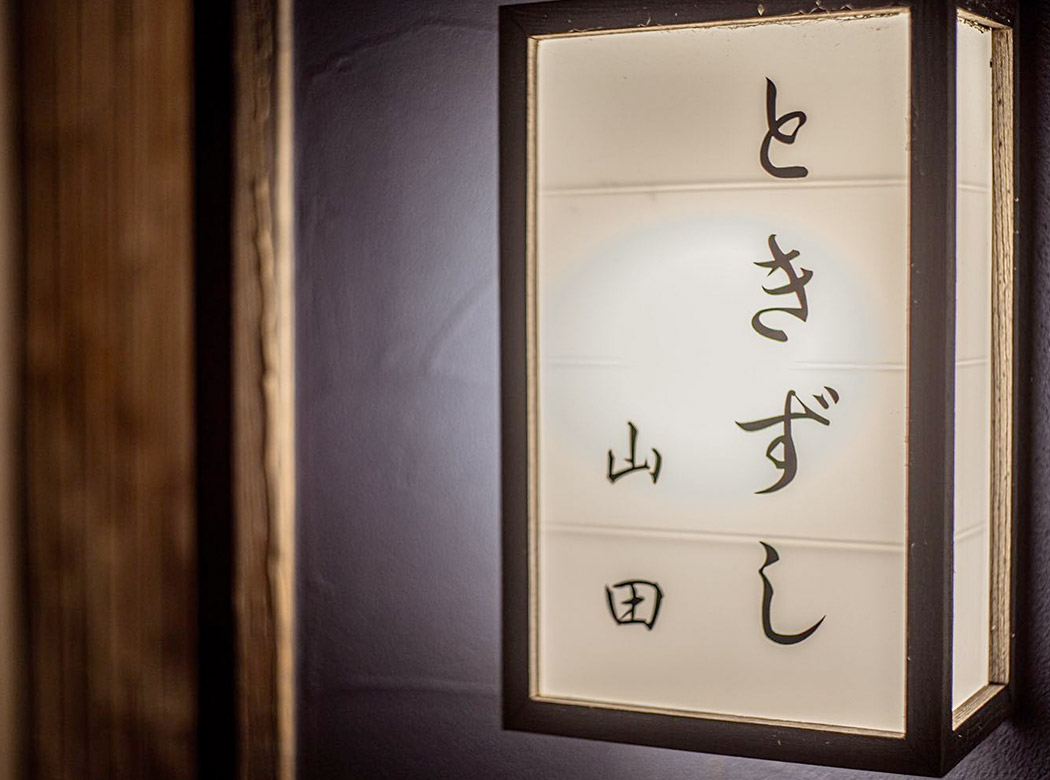 ときずし
山田